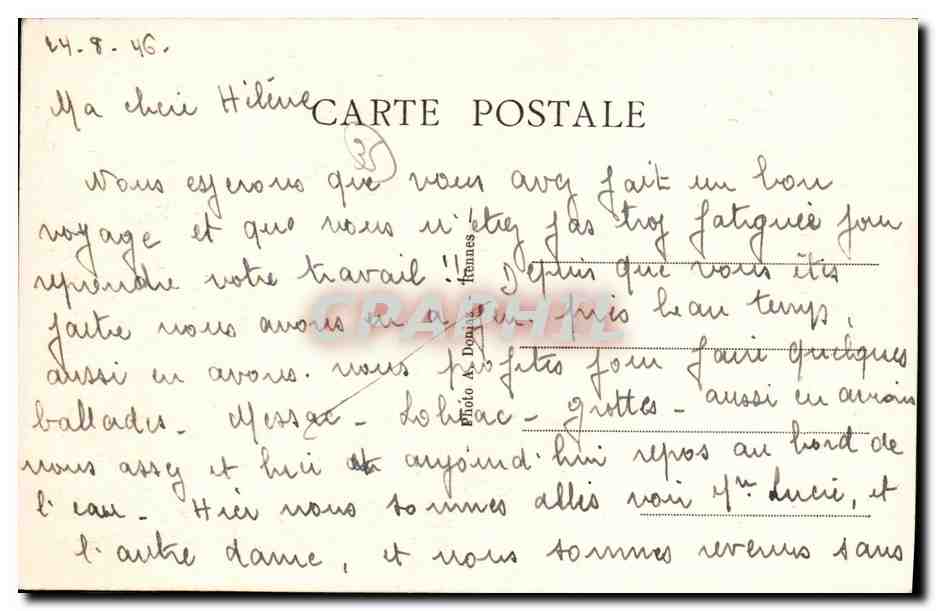 24-8-46.
Ma chère Hélène
CARTE POSTALE
35
Nous esperons que vous avez fait un bon
voyage et que vous n'étiez pas trop fatiguée pour
reprendre votre travail !! Depuis que vous êtes
partie nous avons eu à peu près beau temps,
aussi en avons-nous profités pour faire quelques
ballades - Messac - Lohéac - grottes - aussi en avions
nous assez et hier aujourd'hui repos au bord de
l'eau - Hier nous sommes allés voir Mme Lucie, et
l'autre dame, et nous sommes revenus sans
Photo A. Donias Rennes
CPAPHIL